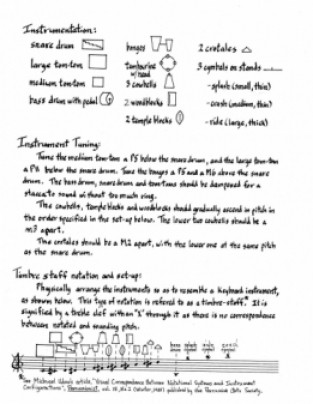 Instrumentation:
snare drum
large tom-tom
medium tom-tom
bass drum with pedal
bongos
tambourine w/head
3 cowbells
2 woodblocks
2 temple blocks
2 crotales
3 cymbals on stands
-splash (small, thin)
-crash (medium, thin)
-ride (large, thick)
Instrument Tuning:
Tune the medium tom-tom a P5 below the snare drum, and the large tom-tom
a P8 below the snare drum. Tune the bongos a P5 and a M6 above the snare
drum. The bass drum, snare drum and tom-toms should be dampened for a
staccato sound without too much ring.
The cowbells, temple blocks and woodblocks should gradually ascend in pitch in
the order specified in the set-up below. The lower two cowbells should be a
m3 apart.
The crotales should be a M2 apart, with the lower one at the same pitch
as the snare drum.
Timbre staff notation and set-up:
Physically arrange the instruments so as to resemble a keyboard instrument,
as shown below. This type of notation is referred to as a timbre-staff.* It is
signified by a treble clef with an "X" through it as there is no correspondence
between notated and sounding pitch.
*See Michael Udow's article, "Visual Correspondence Between Notational Systems and Instrument
Configurations", Percussionist, vol. 18, published by the Percussive Arts Society.